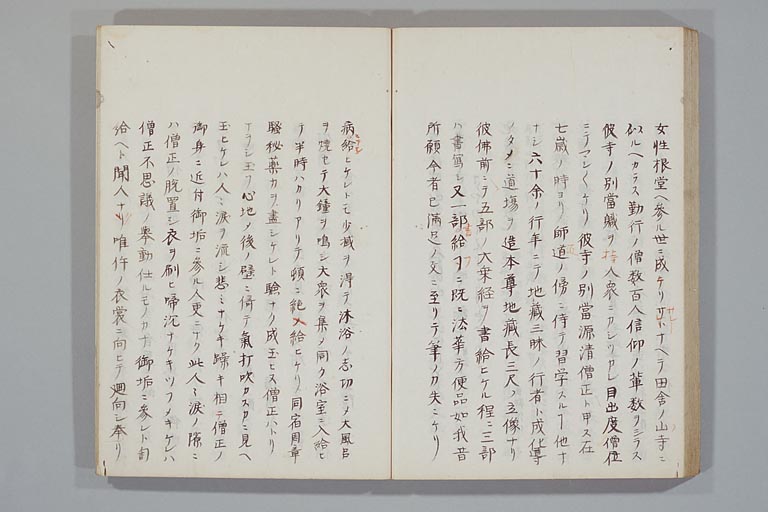 女性根堂ヘ參ル世ニ成ケリナヘテ田舎ノ山寺ニ
似ルヘカラス勤行ノ僧数百人信仰ノ輩数ヲシラス
彼寺ノ別當職ヲハ人衆ニカシツカレ目出度僧位
ニテマシ〱ケリ彼寺ノ別當源清僧正ト申ス在
七歳ノ時ヨリ師道ノ傍ニ侍テ習学スル事他ナ
ナシ六十余ノ行年ニテ地藏三昧ノ行者ト成化導
ノタメニ道塲ヲ造本尊地藏長三尺ノ立像ナリ
彼佛前ニテ五部ノ大乗経ヲ書給ヒケル程ニ三部
ハ書冩シ又一部給フニ既ニ法華方便品如我昔
所願今者已満足ノ文ニ至リテ筆ノカ失ニケリ
病給ヒケレトモ少减ヲ得テ沐浴ノ志切ニメ大風呂
ヲ焼セテ大鐘ヲ鳴シ大衆ヲ集メ同ク浴室ニ入給ヒ
テ半時ハカリアリテ頓ニ絶メ給ヒケリ同宿周章
騒秘藥カヲ盡シケレト驗ナク成玉ヒス僧正ハトリ
テラシ玉フ心地メ後ノ壁ニ倚テ氣打吹カスカニ見ヘ
玉ヒケレハ人〻涙ヲ流シ悲ミナケキ躁キ相テ僧正ノ
御身ニ近付御垢ニ參ル人更ニナク此人〻涙ノ隙ニ
ハ僧正ノ脱置シ衣ヲ刷ヒ啼沉ナケキツフメキケレハ
僧正不思議ノ擧動仕ルモノカナ御垢ニ參レト訇
給ヘト聞人ナリ唯件ノ衣裳ニ向ヒテ廻向シ奉リ